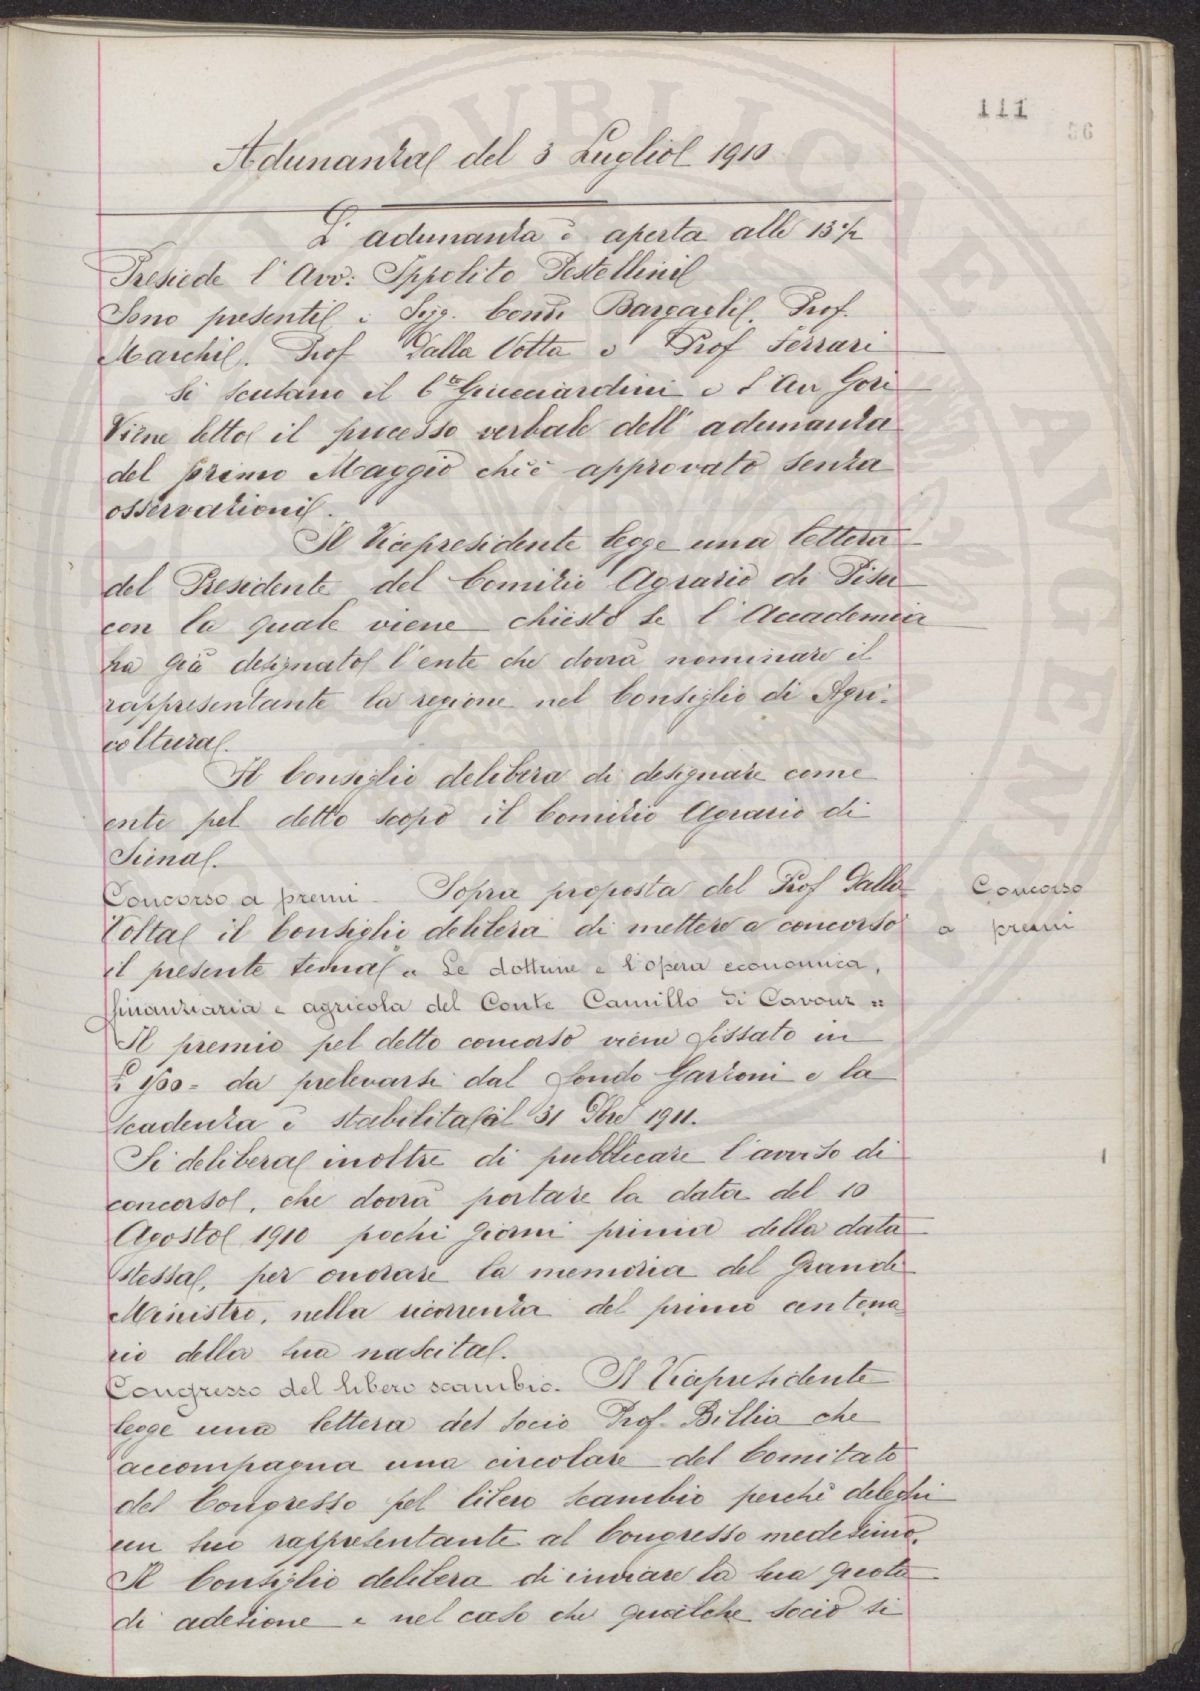 111
56
Adunanza del 3 Luglio 1910
L'adunanza è aperta alle 13 1/2
Presiede l'Avv: Ippolito Pestellini
Sono presenti i Sigg. Comm Bargagli. Prof.
Marchi. Prof Dalla Volta e Prof Ferrari
Si scusano il Cte Guicciardini e l'Avv Gori
Viene letto il processo verbale dell'adunanza
del primo Maggio ch'è approvato senza
osservazioni.
Il Vicepresidente legge una lettera
del Presidente del Comizio Agrario di Pisa
con la quale viene chiesto se l'Accademia
ha già designato l'ente che dovrà nominare il
rappresentante la regione nel Consiglio di Agri-
coltura.
Il Consiglio delibera di designare come
ente pel detto scopo il Comizio Agrario di
Siena.
Concorso a premi - Sopra proposta del Prof Dalla
Volta il Consiglio delibera di mettere a concorso
il presente tema « Le dottrine e l'opera economica,
finanziaria e agricola del Conte Camillo di Cavour »
Concorso
a premi
Il premio pel detto concorso viene fissato in
£ 1500 = da prelevarsi dal fondo Garzoni e la
scadenza è stabilita al 31 Dbre 1911.
Si delibera inoltre di pubblicare l'avviso di
concorso, che dovrà portare la data del 10
Agosto 1910 pochi giorni prima della data
stessa, per onorare la memoria del Grande
Ministro, nella ricorrenza del primo centena-
rio della sua nascita.
Congresso del libero scambio. Il Vicepresidente
legge una lettera del socio Prof. Billia che
accompagna una circolare del Comitato
del Congresso pel libero scambio perchè deleghi
un suo rappresentante al Congresso medesimo.
Il Consiglio delibera di inviare la sua quota
di adesione e nel caso che qualche socio si